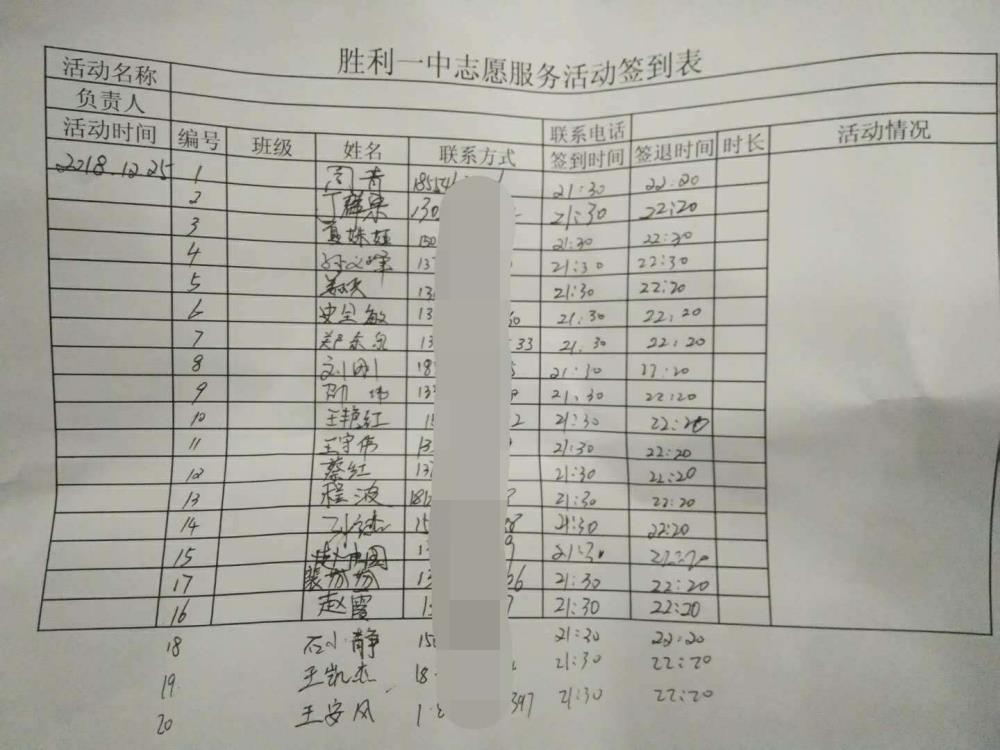 胜利一中志愿服务活动签到表
活动名称
负责人 联系电话
活动时间 编号 班级 姓名 联系方式 签到时间 签退时间 时长 活动情况
2018.12.25 1 青 1855 21:30 22:20
2 丁 130 21:30 22:20
3 150 21:30 22:30
4 137 21:30 22:30
5 21:30 22:20
6 安全敏 13 60 21:30 22:20
7 郑东 13 33 21:30 22:20
8 刘刚 18 21:30 22:20
9 13 21:30 22:20
10 王艳红 1 2 21:30 22:20
11 王守伟 13 21:30 22:20
12 蔡红 13 21:30 22:20
13 程波 181 21:30 22:20
14 15 21:30 22:20
15 赵 国 1 21:30 22:20
17 裴 13 26 21:30 22:20
16 赵霞 1 21:30 22:20
18 石小静 150 21:30 22:20
19 王凯杰 18 21:30 22:20
20 王安风 1 397 21:30 22:20